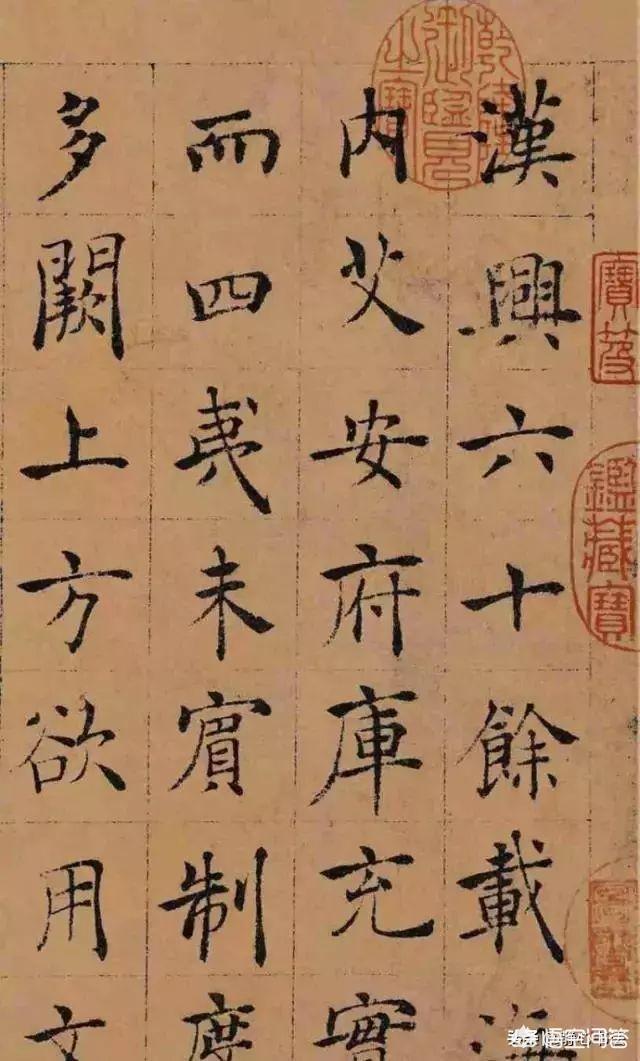 漢興六十餘載海
内艾安府庫充實
而四夷未賓制度
多闕上方欲用文
乾隆
御覽
之寶
寶笈
鑑藏寶
悟空问答